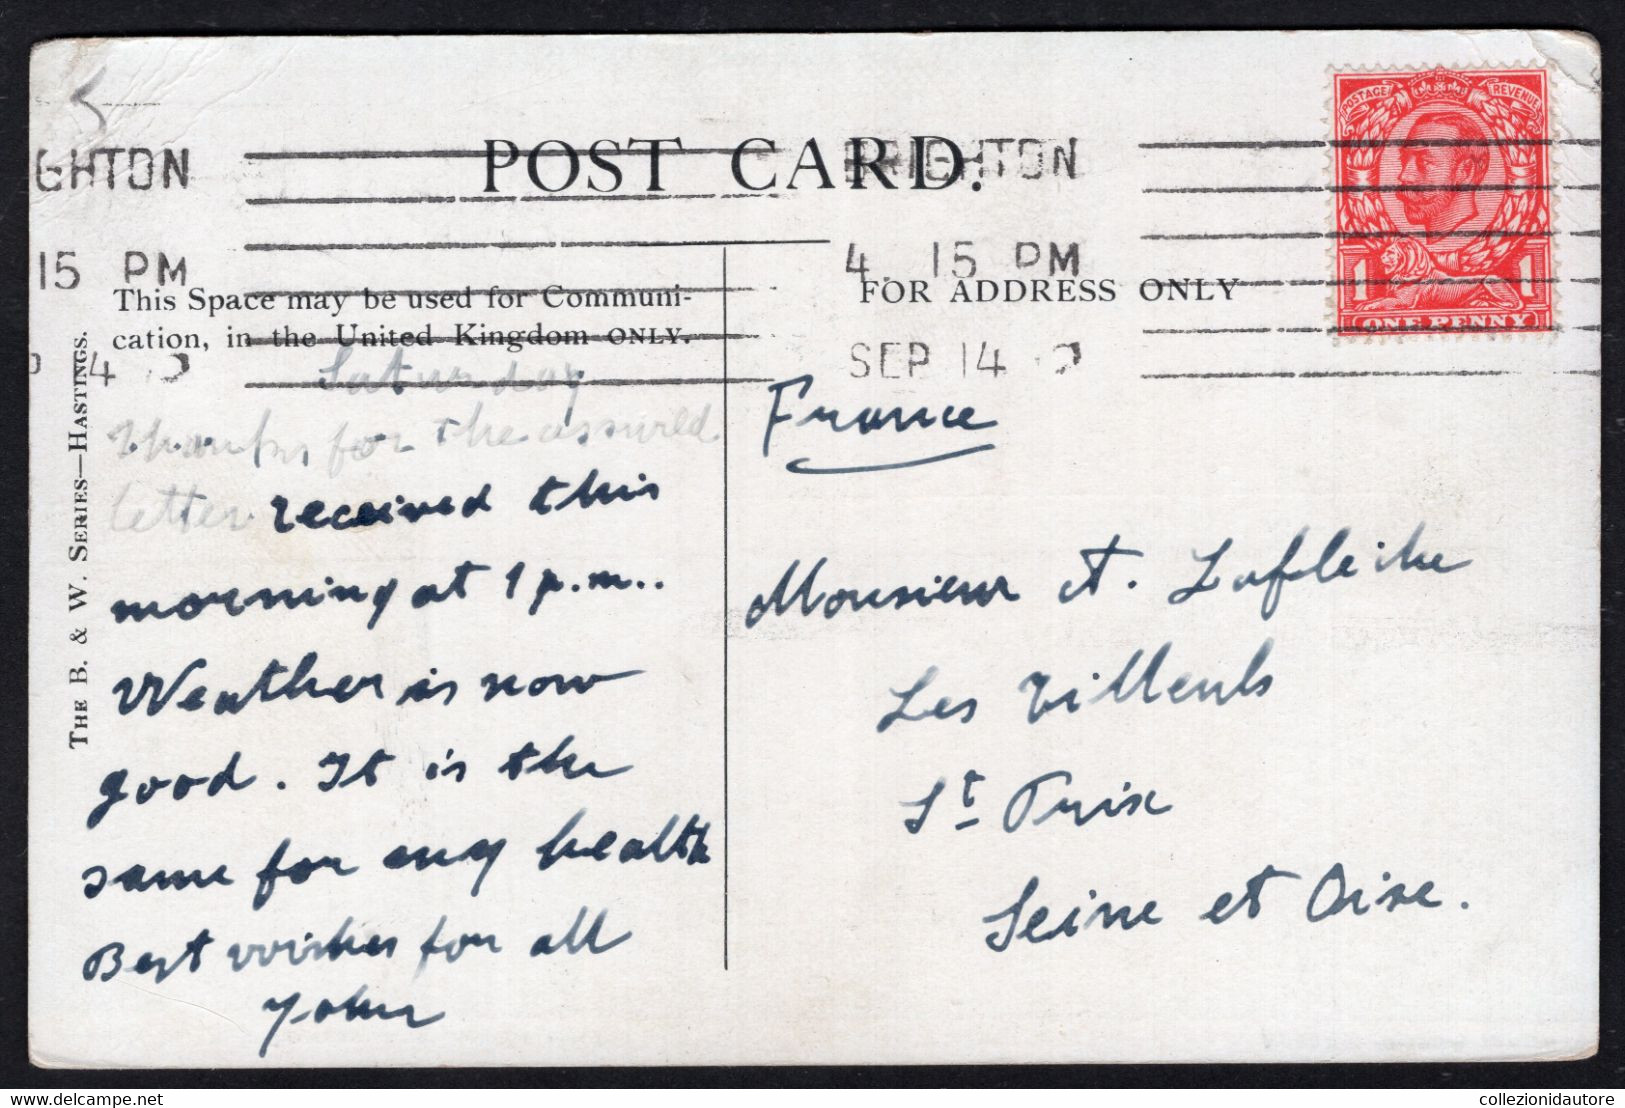 POST CARD.
GHTON
BRIGHTON
15 PM
4. 15 PM
SEP 14
POSTAGE REVENUE
1 1
ONE PENNY
This Space may be used for Communi-
cation, in the United Kingdom ONLY.
FOR ADDRESS ONLY
THE B. & W. SERIES—HASTINGS.
Saturday
Thanks for the assured
letter received this
morning at 1 p.m..
Weather is now
good. It is the
same for my health
Best wishes for all
John
France
Monsieur et.
Les Tilleuls
St Prix
Seine et Oise.
collezionidautore
delcampe.net